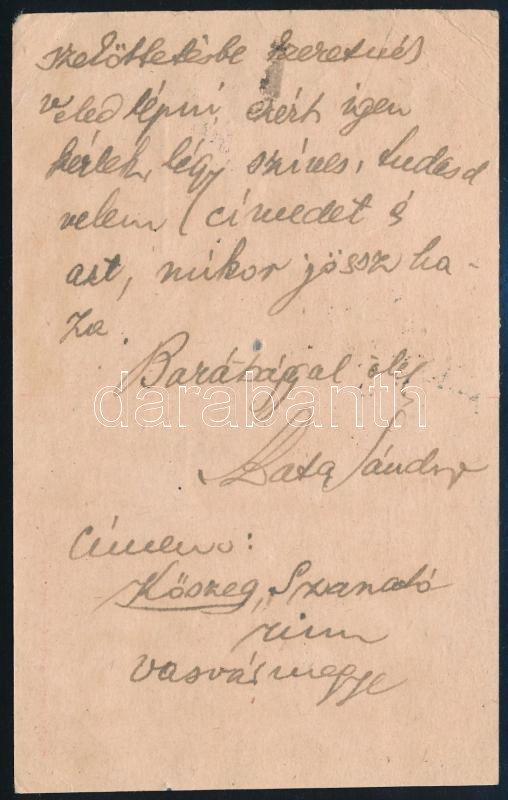 szeköttetésbe szeretnék
veled lépni, ezért igen
kérlek, légy szíves, tudasd
velem (címedet és
azt, mikor jössz ha-
za.
Barátságal ölel
Sándor
Címem:
Kőszeg, Szanató
rium
Vasvármegye
darabanth